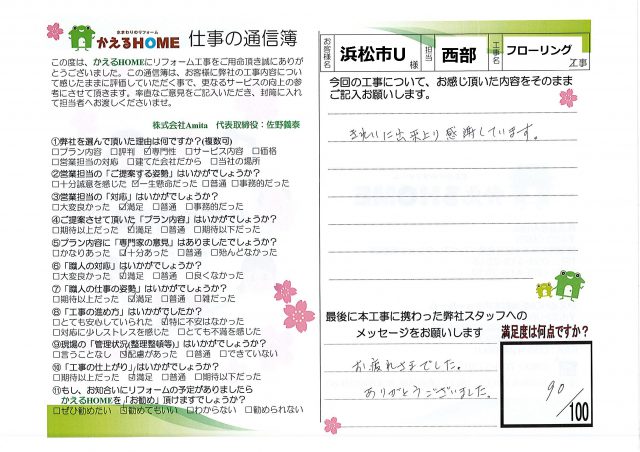 水まわりのリフォーム
かえるHOME 仕事の通信簿
この度は、かえるHOMEにリフォーム工事をご用命頂き誠にありが
とうございました。この通信簿は、お客様に弊社の工事内容につい
て感じたままに評価していただく事で、更なるサービスの向上の参
考にさせて頂きます。率直なご意見をご記入いただき、封筒に入れ
て担当者へお渡しくださいませ。
株式会社Amita 代表取締役：佐野義泰
①弊社を選んで頂いた理由は何ですか?(複数可)
□プラン内容 □評判 ☑専門性 □サービス内容 □価格
□営業担当の対応 □建てた会社だから □当社の場所
②営業担当の「ご提案する姿勢」はいかがでしょうか?
□十分誠意を感じた ☑一生懸命だった □普通 □事務的だった
③営業担当の「対応」はいかがでしょうか?
□大変良かった ☑満足 □普通 □事務的だった
④ご提案させて頂いた「プラン内容」はいかがでしょうか?
□期待以上だった ☑満足 □普通 □期待以下だった
⑤プラン内容に「専門家の意見」はありましたでしょうか?
□かなりあった ☑十分あった □普通 □殆んどなかった
⑥「職人の対応」はいかがでしょうか?
□大変良かった ☑満足 □普通 □良くなかった
⑦「職人の仕事の姿勢」はいかがでしょうか?
□期待以上だった ☑満足 □普通 □雑だった
⑧「工事の進め方」はいかがでしたか?
□とても安心していられた ☑特に不安はなかった
□対応に少しストレスを感じた □とても不満を感じた
⑨現場の「管理状況(整理整頓等)」はいかがでしょうか?
□言うことなし ☑配慮があった □普通 □できていない
⑩「工事の仕上がり」はいかがでしょうか?
□期待以上だった ☑満足 □普通 □期待以下だった
⑪もし、お知合いにリフォームの予定がありましたら
かえるHOMEを「お勧め」頂けますでしょうか?
□ぜひ勧めたい ☑勧めてもいい □わからない □勧められない
お客様名 浜松市U 様 担当 西部 工事名 フローリング 工事
今回の工事について、お感じ頂いた内容をそのまま
ご記入お願いします。
きれいに出来上り感謝しています。
最後に本工事に携わった弊社スタッフへの
メッセージをお願いします
お疲れさまでした。
ありがとうございました。
満足度は何点ですか?
90
/100